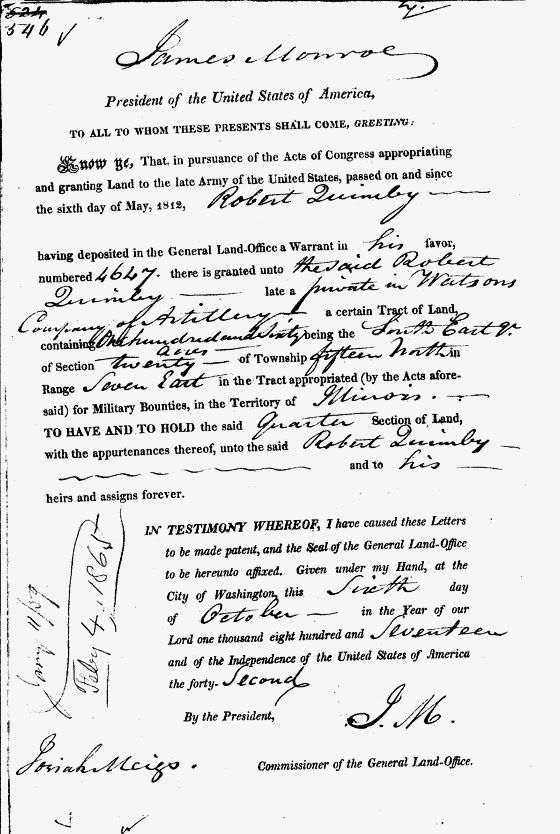 524
546 ✓
James Monroe
President of the United States of America,
TO ALL TO WHOM THESE PRESENTS SHALL COME, GREETING:
Know ye, That, in pursuance of the Acts of Congress appropriating
and granting Land to the late Army of the United States, passed on and since
the sixth day of May, 1812, Robert Quimby
having deposited in the General Land-Office a Warrant in his favor,
numbered 4647. there is granted unto the said Robert
Quimby late a private in Watsons
Company of Artillery a certain Tract of Land,
containing One hundred and Sixty being the South East qr.
acres
of Section twenty of Township fifteen North in
Range Seven East in the Tract appropriated (by the Acts afore-
said) for Military Bounties, in the Territory of Illinois.
TO HAVE AND TO HOLD the said Quarter Section of Land,
with the appurtenances thereof, unto the said Robert Quimby
and to his
heirs and assigns forever.
IN TESTIMONY WHEREOF, I have caused these Letters
to be made patent, and the Seal of the General Land-Office
to be hereunto affixed. Given under my Hand, at the
City of Washington, this Sixth day
of October in the Year of our
Lord one thousand eight hundred and Seventeen
and of the Independence of the United States of America
the forty-Second
By the President, J. M.
Josiah Meigs. Commissioner of the General Land-Office.
Feby 4. 1865